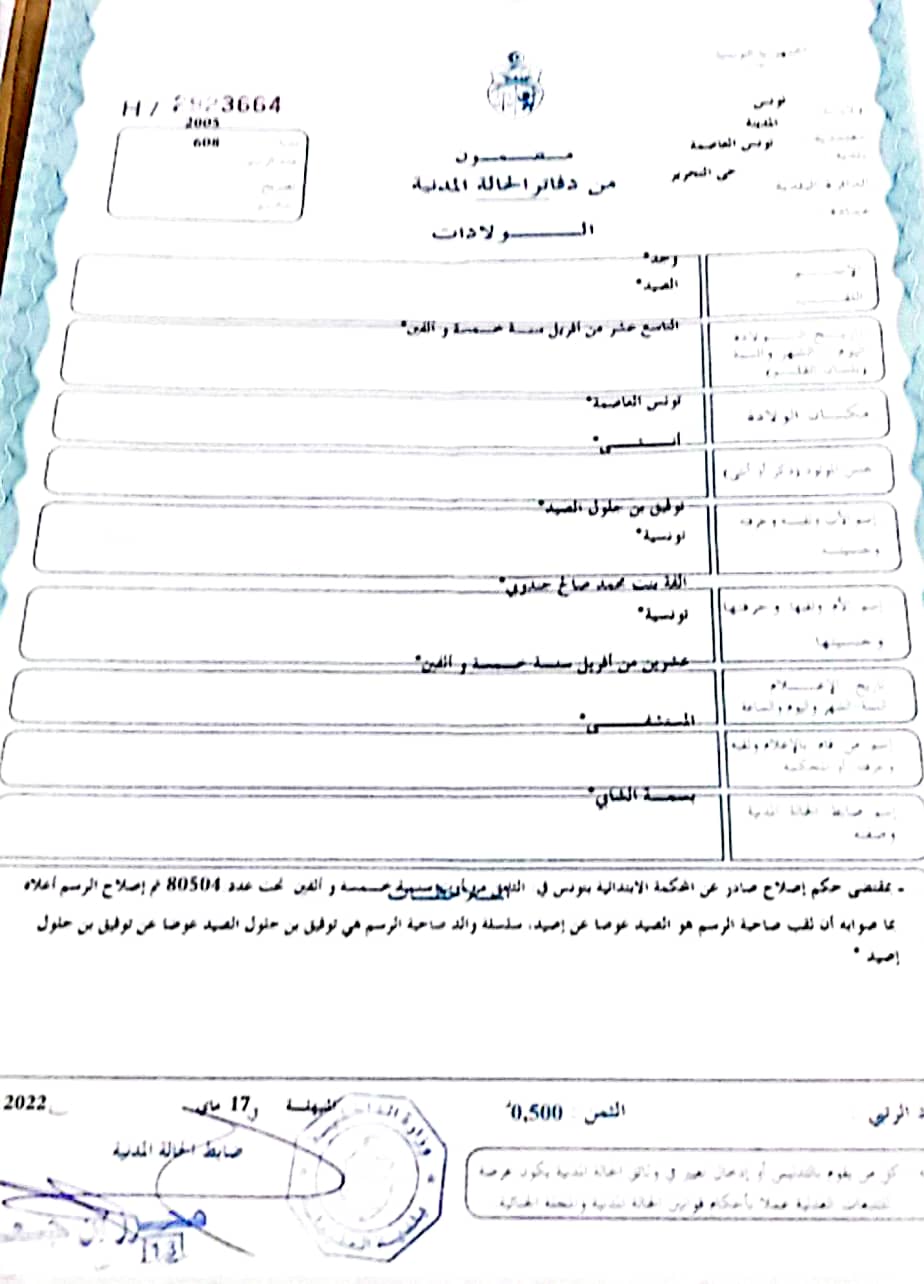 الجمهورية التونسية
H / 2923664
2005
608
تونس
المدينة
تونس العاصمة
حي التحرير
الدائرة البلدية
مضمون
من دفاتر الحالة المدنية
الولادات
الإسم
وجد*
اللقب
الصيد*
تاريخ الولادة
اليوم الشهر والسنة
وبلسان القلم
التاسع عشر من أفريل سنة خمسة و ألفين*
مكان الولادة
تونس العاصمة*
جنس المولود (ذكر أو أنثى)
أنثى*
إسم الأب ولقبه وحرفته
وجنسيته
توفيق بن حلول الصيد*
تونسية*
إسم الأم ولقبها وحرفتها
وجنسيتها
الفة بنت محمد صالح
تونسية*
تاريخ الإعلام
السنة الشهر واليوم والساعة
عشرين من أفريل سنة خمسة و ألفين*
إسم من قام بالإعلام ولقبه
وحرفته أو المحكمة
المستشفى*
إسم ضابط الحالة المدنية
وصفته
بسمة الشابي*
- بمقتضى حكم إصلاح صادر عن المحكمة الابتدائية بتونس في سنة خمسة و ألفين تحت عدد 80504 تم إصلاح الرسم أعلاه
بما صوابه أن لقب صاحبة الرسم هو الصيد عوضا عن إصيد، سلسلة والد صاحبة الرسم هي توفيق بن حلول الصيد عوضا عن توفيق بن حلول
إصيد *
الثمن : 0,500د
و 17 ماي 2022
ضابط الحالة المدنية
وزارة الداخلية
13
كل من يقوم بالتدليس أو إدخال تغيير في وثائق الحالة المدنية يكون عرضة
للتتبعات العدلية عملا بأحكام قوانين الحالة المدنية والمجلة الجنائية